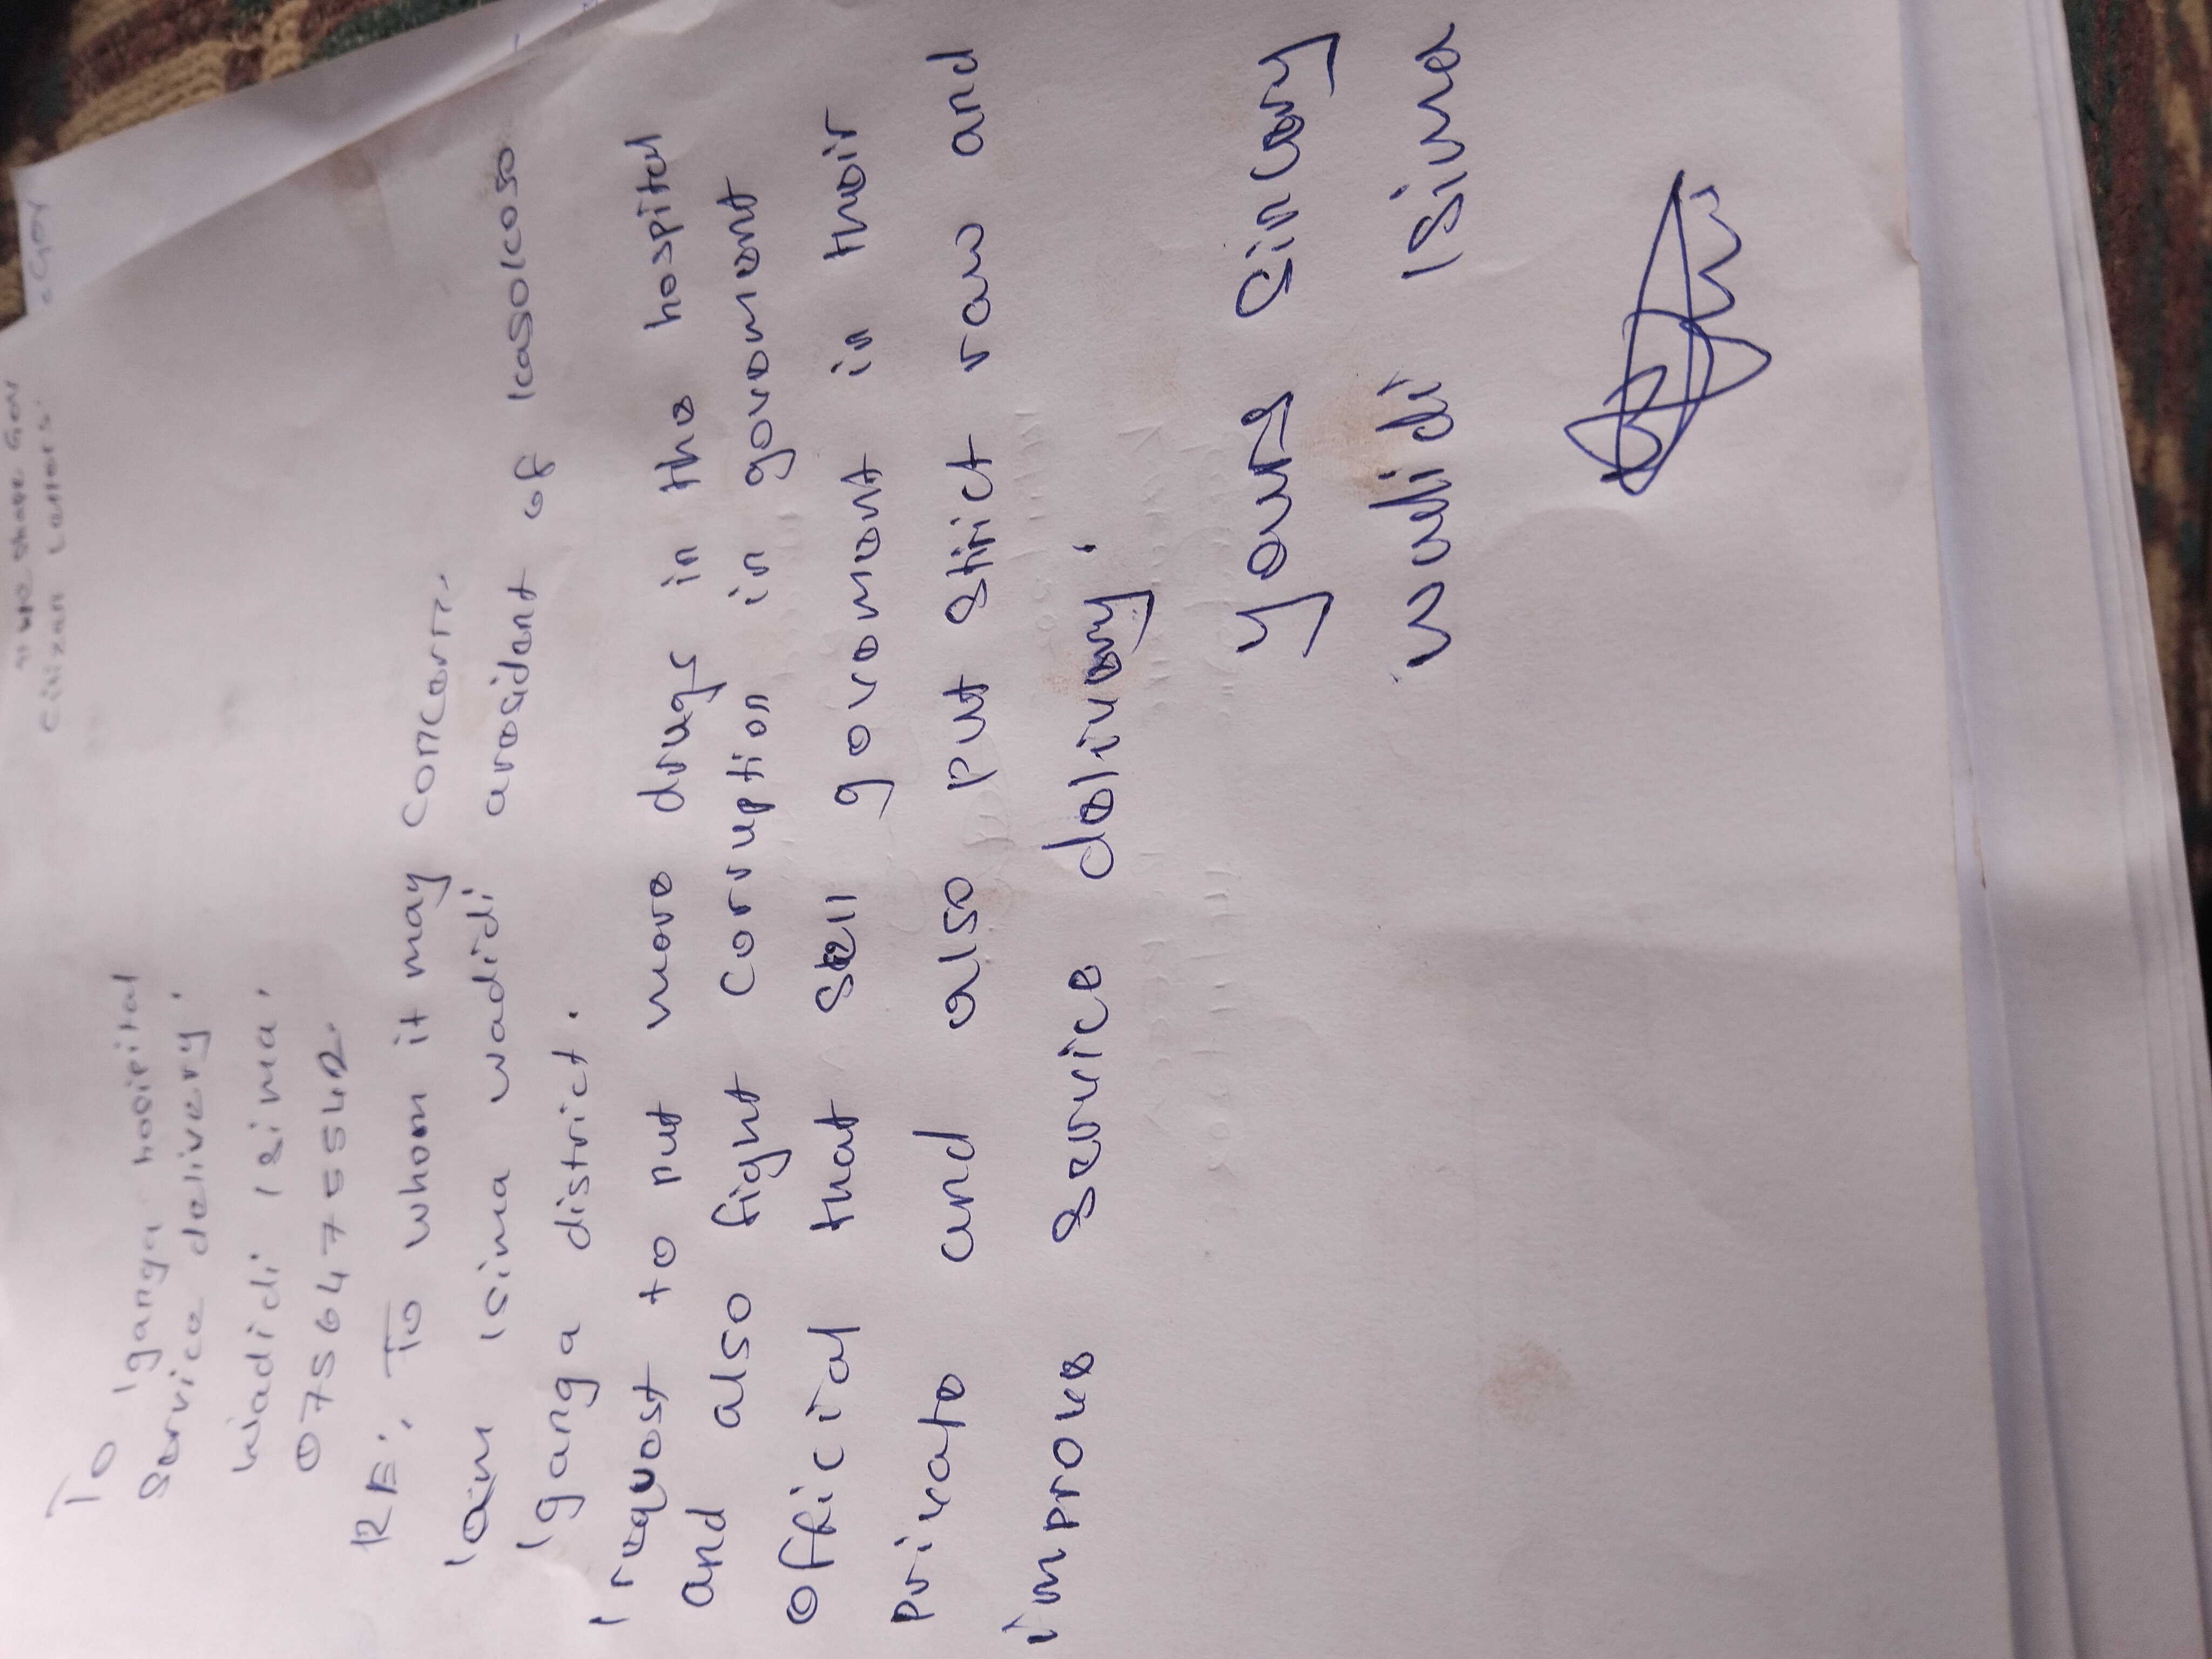 "WeShare Gov
Citizen Letters"
To
Iganga hospital
Service delivery.
Wadidi Isima.
0756475542
RE: To whom it may concern.
Iam Isima wadidi aresident of kasokoso
Iganga district.
I request to put more drugs in the hospital
and also fight corruption in government
official that sell government in their
private and also put strict raw and
improve service delivery.
yours Sincery
wadidi Isima